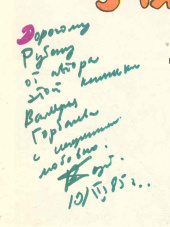 Дорогому
Рубену
от автора
этой книжки
Валерия
Горбачева
с
любовью.
10/VI, 85 г.